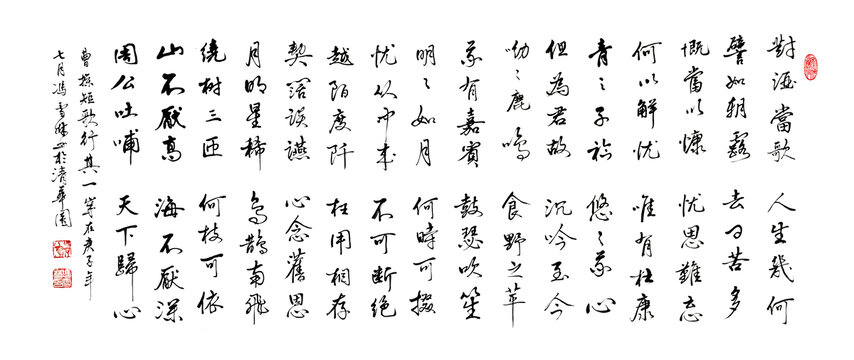 對酒當歌 人生幾何
譬如朝露 去日苦多
慨當以慷 忧思難忘
何以解忧 唯有杜康
青々子衿 悠々我心
但為君故 沉吟至今
呦々鹿鳴 食野之苹
我有嘉賓 鼓瑟吹笙
明々如月 何時可掇
忧从中来 不可断绝
越陌度阡 枉用相存
契阔談讌 心念舊恩
月明星稀 烏鵲南飛
繞樹三匝 何枝可依
山不厭高 海不厭深
周公吐哺 天下歸心
曹操短歌行其一 岁在庚子年
七月馮雪 於清華園